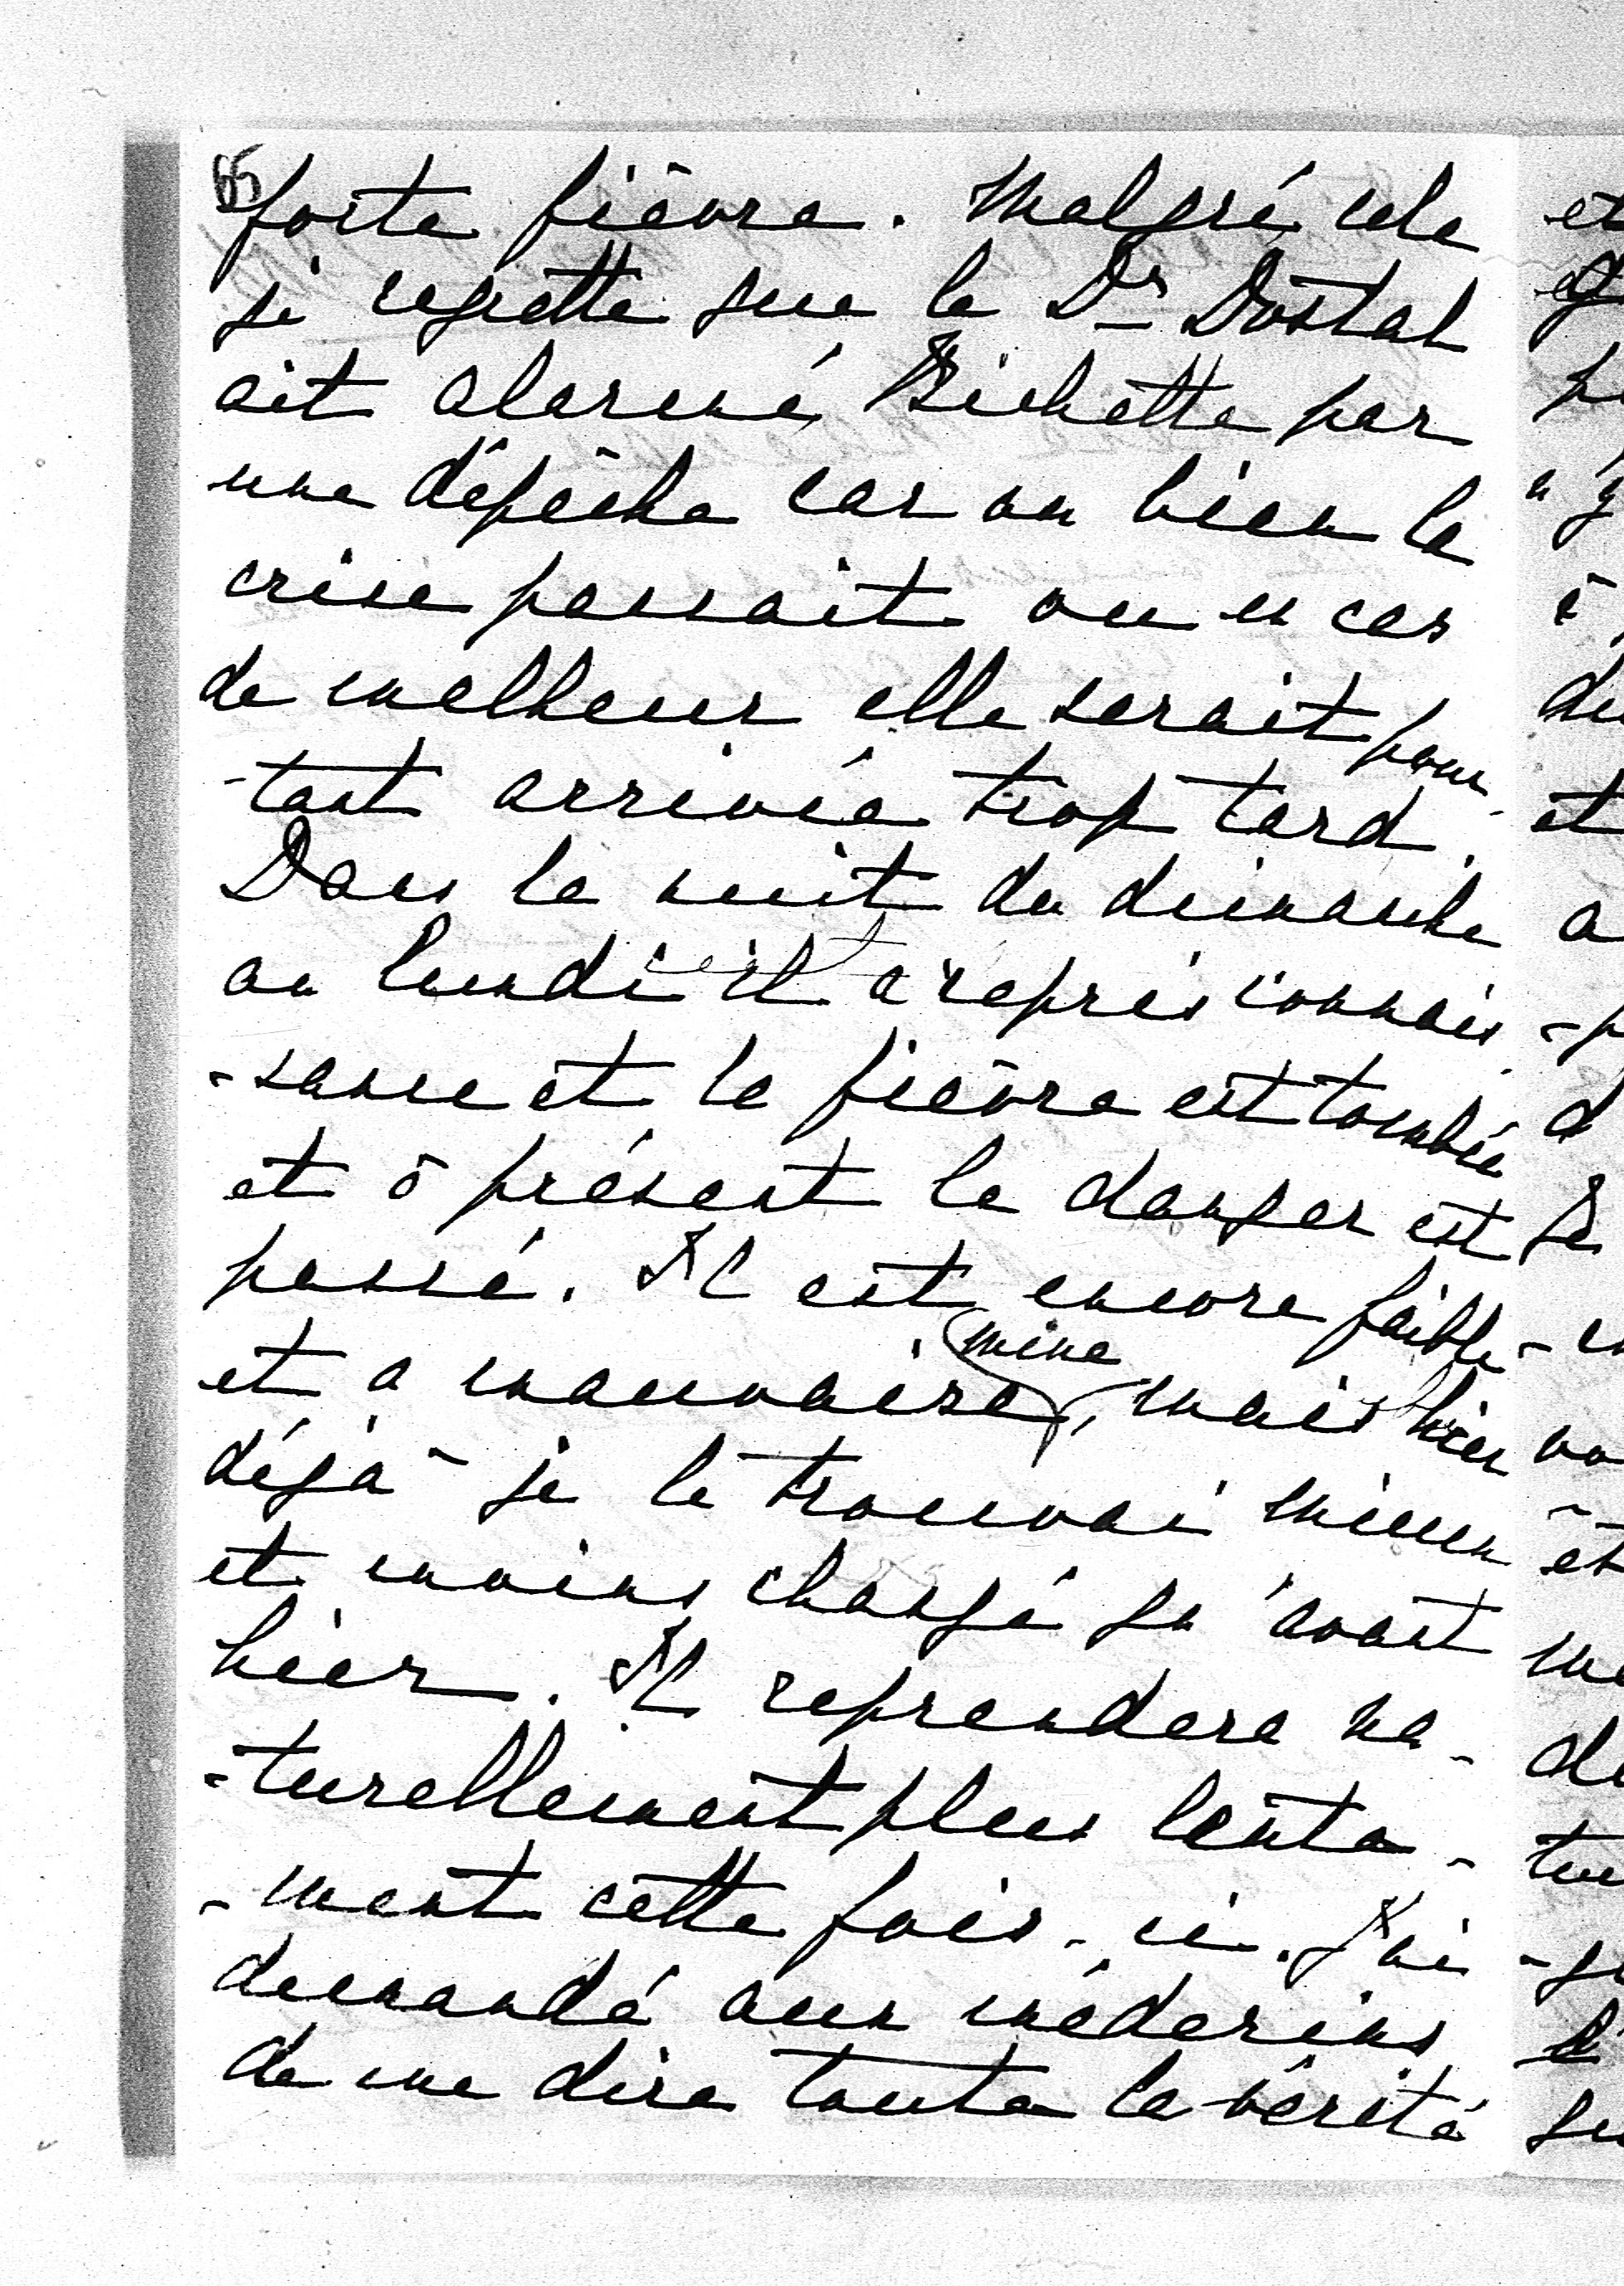 65
forte fièvre. Malgré cela
je regrette que le Dr Dostal
ait alarmé Bichette par
une dépêche car ou bien la
crise passait ou en cas
de malheur elle serait pour-
-tant arrivée trop tard.
Dans la nuit du dimanche
au lundi il a repris connais
-sance et la fièvre est tombée
et à présent le danger est
passé. Il est encore faible
et a mauvaise mine, mais hier
déjà je le trouvai mieux
et moins changé qu'avant
hier. Il reprendera na-
-turellement plus lente-
-ment cette fois-ci. J'ai
demandé aux médecins
de me dire toute la vérité